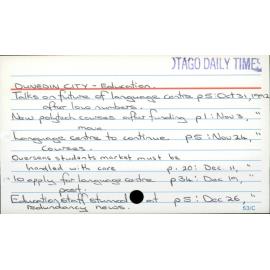 OTAGO DAILY TIMES
DUNEDIN CITY - Education.
Talks on future of language centre p5: Oct 31, 1992
after low numbers.
New polytech courses after funding p1: Nov 3, "
move
Language centre to continue p5: Nov 26, "
courses.
Overseas students market must be
handled with care p. 20: Dec 11, "
10 apply for language centre p34: Dec 19, "
post.
Education staff stunned at p5: Dec 26, "
redundancy news.
53/C